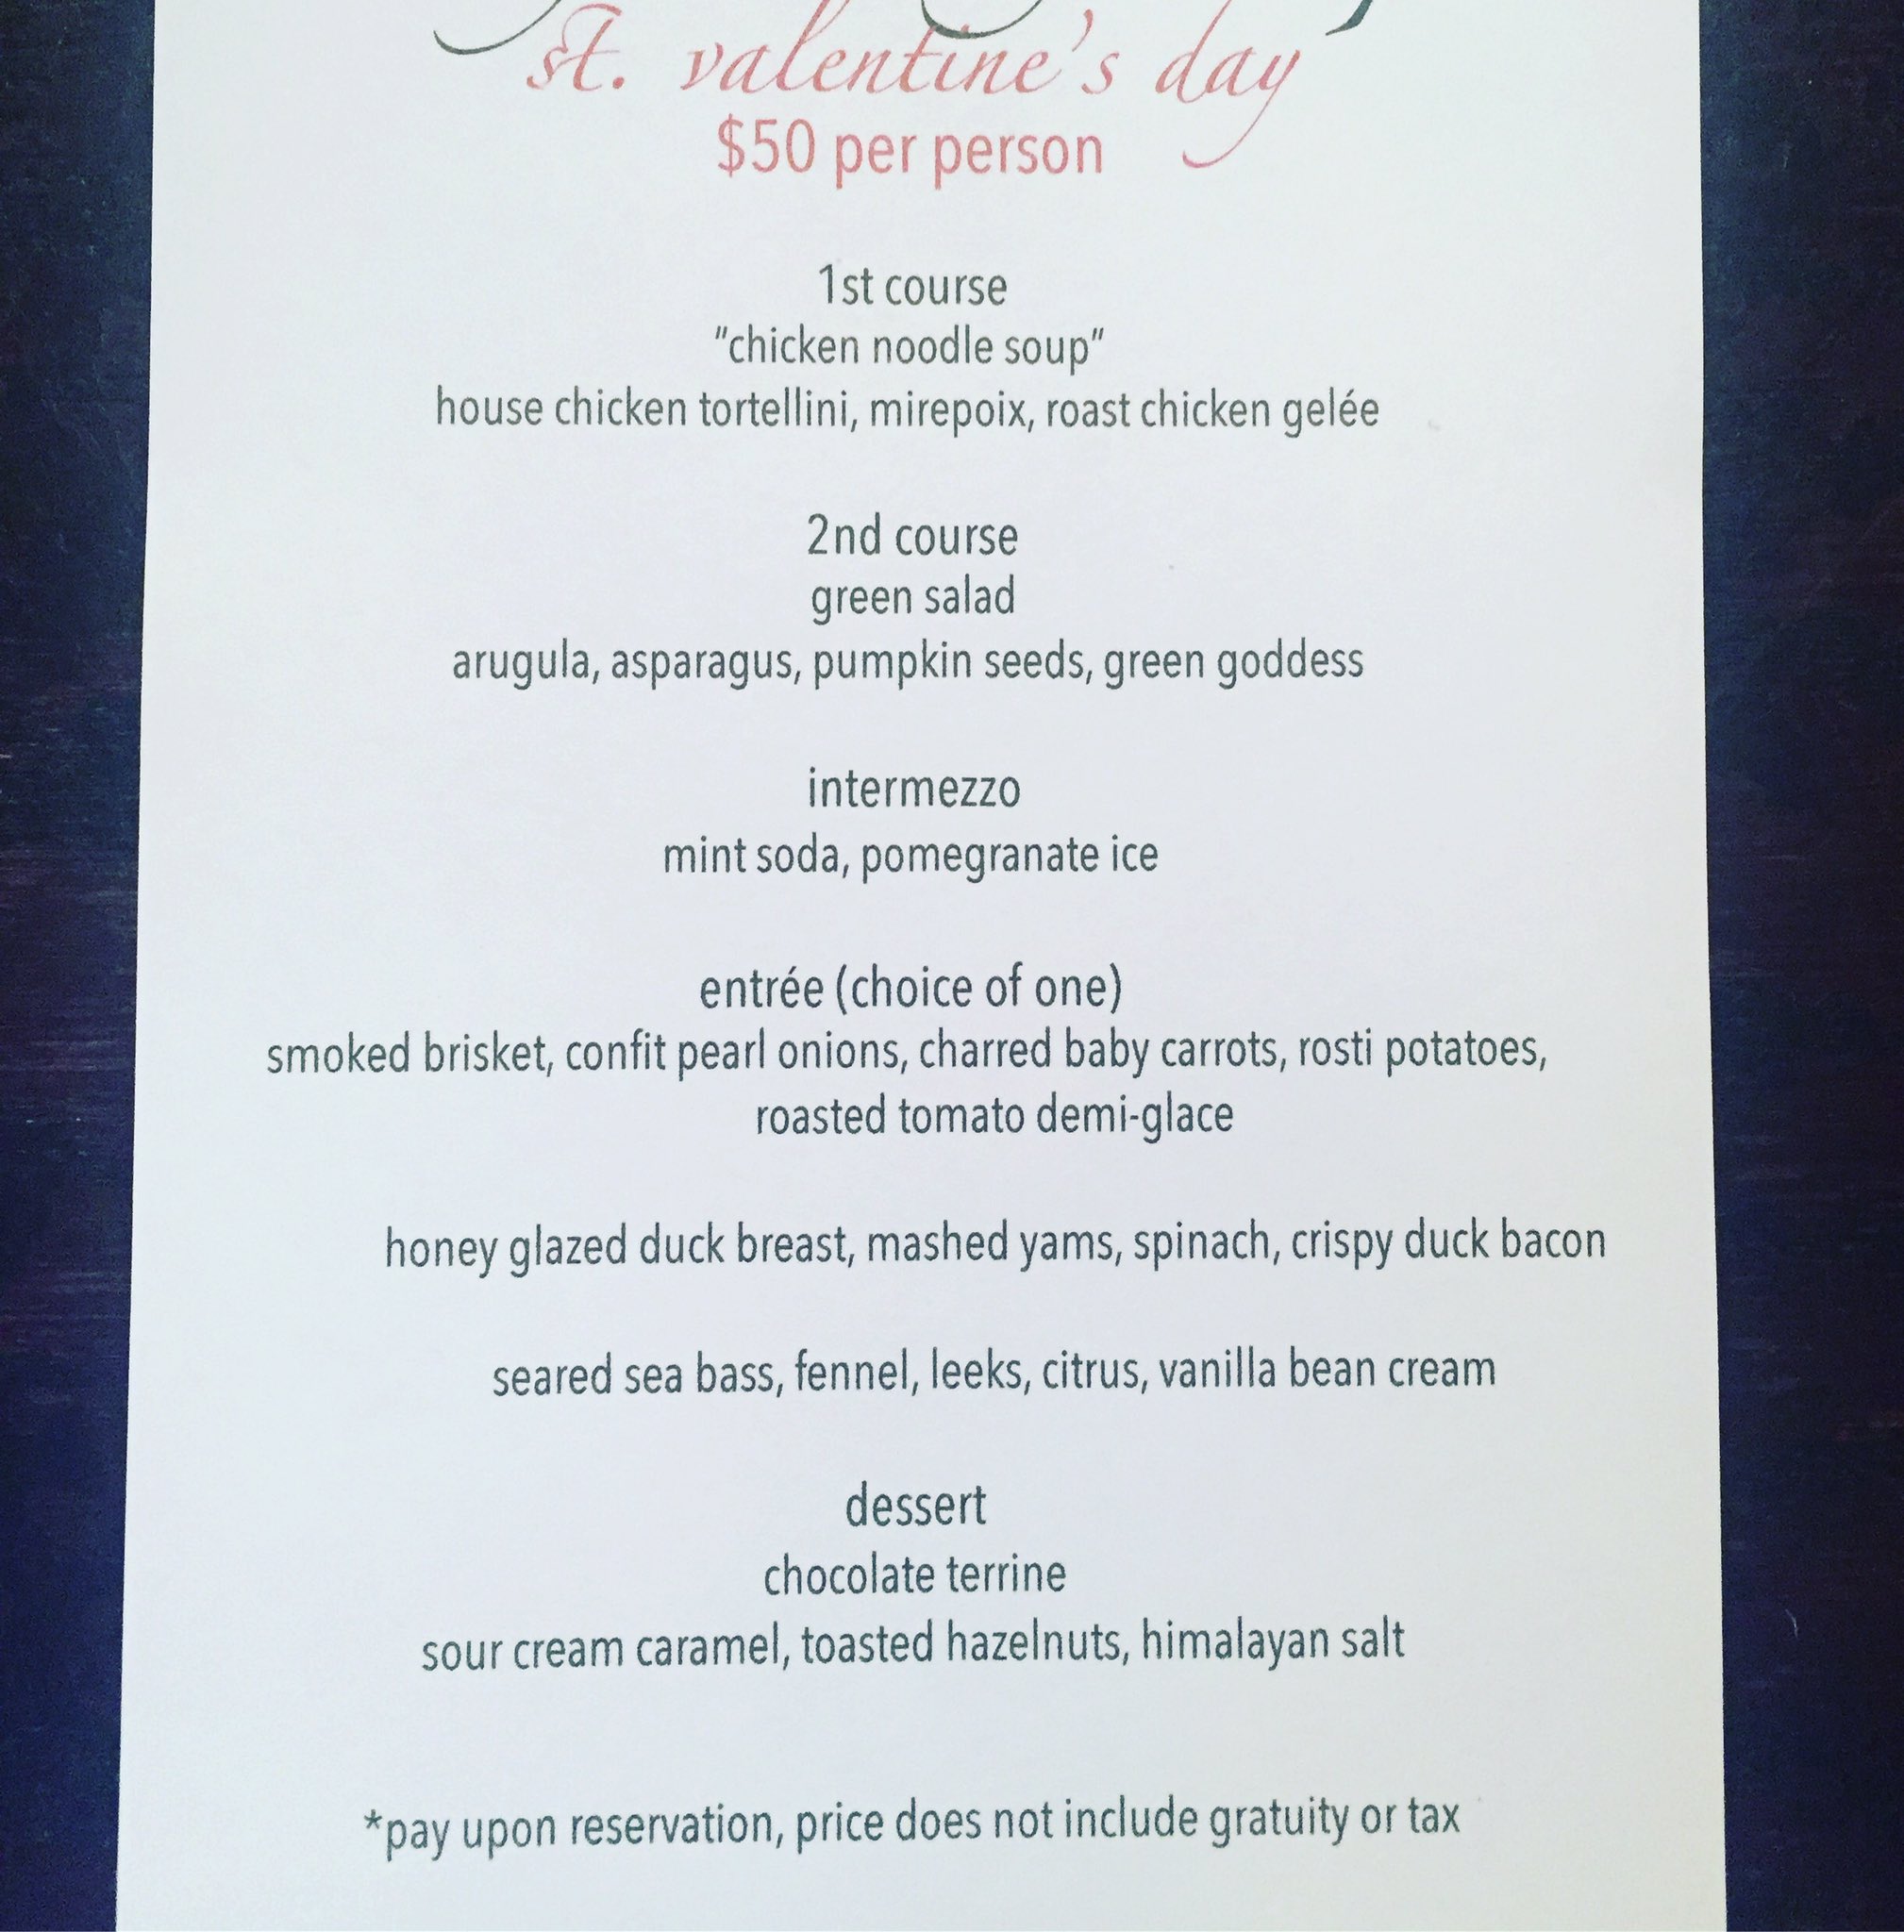 st. valentine's day
$50 per person
1st course
"chicken noodle soup"
house chicken tortellini, mirepoix, roast chicken gelée
2nd course
green salad
arugula, asparagus, pumpkin seeds, green goddess
intermezzo
mint soda, pomegranate ice
entrée (choice of one)
smoked brisket, confit pearl onions, charred baby carrots, rosti potatoes,
roasted tomato demi-glace
honey glazed duck breast, mashed yams, spinach, crispy duck bacon
seared sea bass, fennel, leeks, citrus, vanilla bean cream
dessert
chocolate terrine
sour cream caramel, toasted hazelnuts, himalayan salt
*pay upon reservation, price does not include gratuity or tax